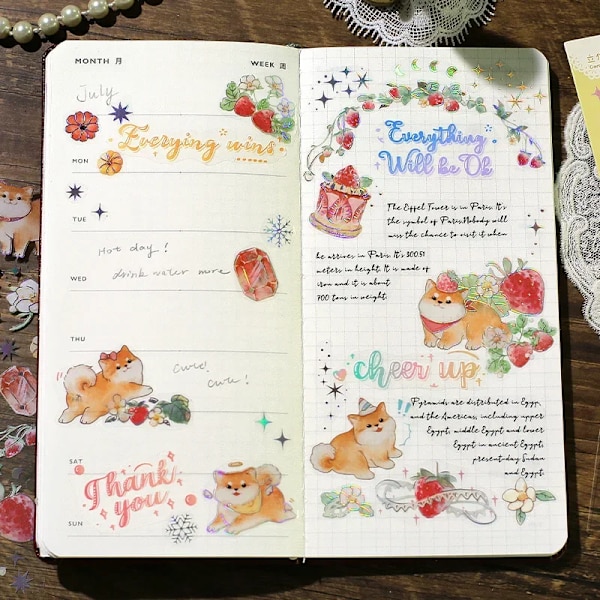 MONTH 月
WEEK 週
July
Everying wins
MON
TUE
Hot day!
WED
drink water more
THU
cure!
cure!
SAT
Thank
you
SUN
Everything
Will be Ok
The Eiffel Tower is in Paris. It's
the symbol of Paris.Nobody will
miss the chance to visit it when
he arrives in Paris. It's 300.51
meters in height. It is made of
iron and it is about
700 tons in weight.
cheer up
Pyramids are distributed in Egyp,
and the Americas, including upper
Egypt, middle Egypt and lower
Egypt in ancient Egypt,
present-day Sudan
and Egypt.